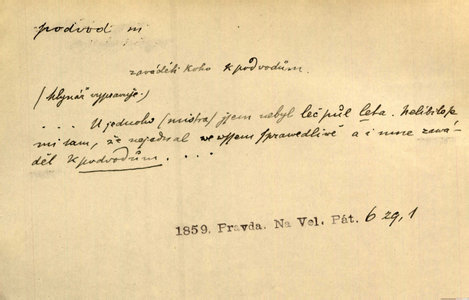 podvod m
zaváděti koho k podvodům.
(Mlynář vypravuje.)
.... U jednoho (mistra) jsem nebyl leč půl leta. Nelíbilo se
mi tam, že nejednal ve všem spravedlivě a i mne zavá-
děl k podvodům. ....
1859. Pravda. Na Vel. Pát. 6 29,1